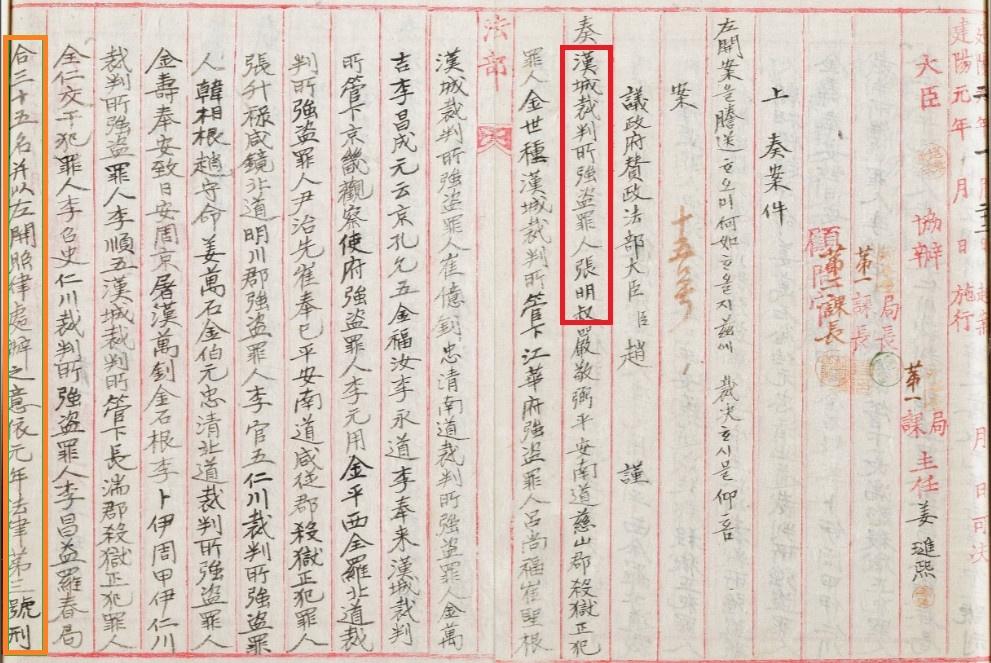 建陽元年 月 日
大臣
協辦
施行
月 日 可決
第一
局長
課長
第一
局
課
主任 姜進熙
上奏案件
左開案을 謄送ᄒᆞ오미 何如ᄒᆞ올지 玆에 裁決ᄒᆞ시믈 仰홈
案
十五号
議政府贊政法部大臣 臣 趙 謹
奏漢城裁判所強盜罪人張明叔嚴敬弼平安南道慈山郡殺獄正犯
罪人金世種漢城裁判所管下江華府強盜罪人呂尚福崔聖根
法部
漢城裁判所強盜罪人崔億釗忠清南道裁判所強盜罪人金萬
吉李昌成元云京孔允五金福汝李永道李奉来漢城裁判
所管下京畿觀察使府強盜罪人李元用金平西全羅北道裁
判所強盜罪人尹治先崔奉巳平安南道咸從郡殺獄正犯罪人
張升祿咸鏡北道明川郡強盜罪人李官五仁川裁判所強盜罪
人韓相根趙守命姜萬石金伯元忠清北道裁判所強盜罪人
金壽奉安致日安周京屠漢萬釗金石根李卜伊周甲伊仁川
裁判所強盜罪人李順五漢城裁判所管下長湍郡殺獄正犯罪人
全仁文干犯罪人李召史仁川裁判所強盜罪人李昌益羅春局
合三十五名并以左開照律處辦之意依元年法律第三號刑